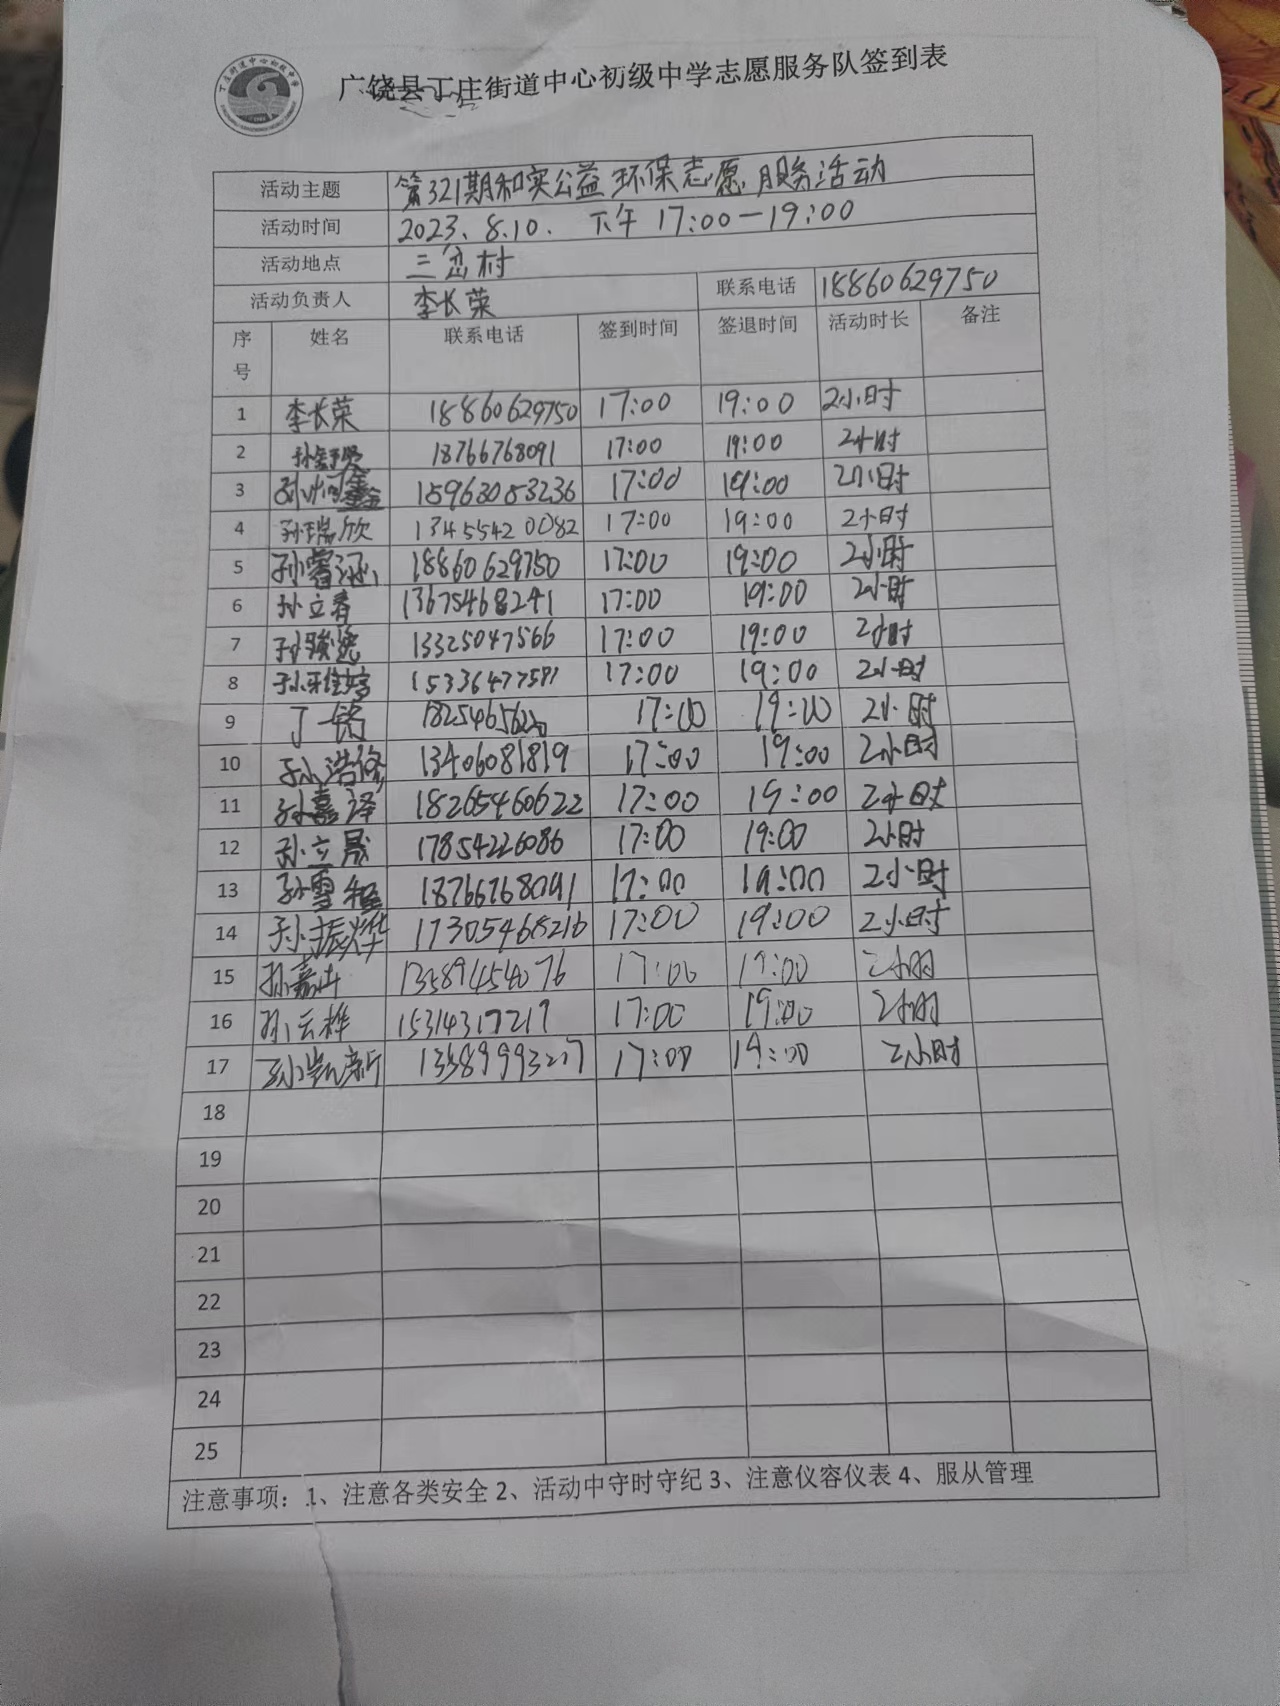 广饶县丁庄街道中心初级中学志愿服务队签到表
活动主题 第321期和实公益环保志愿服务活动
活动时间 2023.8.10. 下午 17:00-19:00
活动地点 三岔村
活动负责人 李长荣 联系电话 18860629750
序号 姓名 联系电话 签到时间 签退时间 活动时长 备注
1 李长荣 18860629750 17:00 19:00 2小时
2 18766768091 17:00 19:00 2小时
3 15963053236 17:00 19:00 2小时
4 孙瑞欣 13455420082 17:00 19:00 2小时
5 孙睿涵 18860629750 17:00 19:00 2小时
6 孙立春 13675468241 17:00 19:00 2小时
7 孙骏逸 13325047566 17:00 19:00 2小时
8 15336477581 17:00 19:00 2小时
9 17:00 19:00 2小时
10 孙浩修 13406081819 17:00 19:00 2小时
11 孙嘉译 18265460622 17:00 19:00 2小时
12 孙立晟 17854226086 17:00 19:00 2小时
13 孙雪程 18766768091 17:00 19:00 2小时
14 孙振烨 17305468216 17:00 19:00 2小时
15 13589454076 17:00 19:00 2小时
16 孙云桦 15314317217 17:00 19:00 2小时
17 孙凯新 13589993217 17:00 19:00 2小时
18
19
20
21
22
23
24
25
注意事项：1、注意各类安全 2、活动中守时守纪 3、注意仪容仪表 4、服从管理